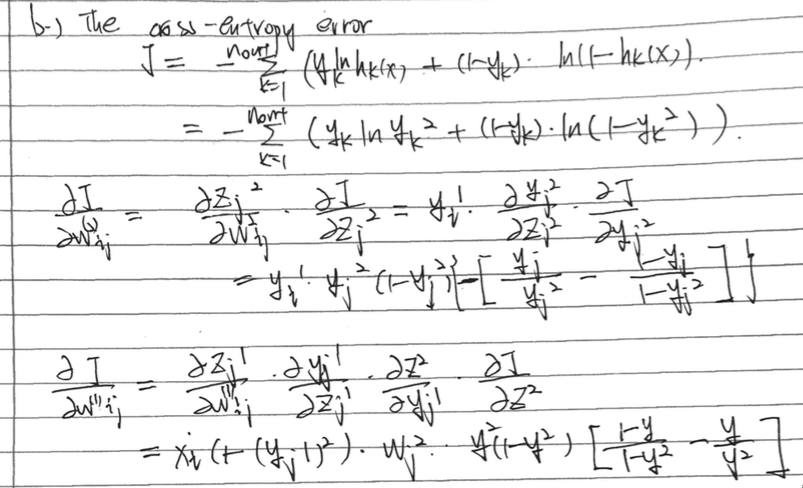 b-) The cross-entropy error
J = - Σ_{k=1}^{nout} (y_k ln h_k(x) + (1-y_k) · ln(1-h_k(x)).
= - Σ_{k=1}^{nout} (y_k ln y_k^2 + (1-y_k) · ln(1-y_k^2)).
∂J/∂w^{(2)}_{ij} = ∂z_j^2/∂w^2_{ij} · ∂J/∂z_j^2 = y_i^1 · ∂y_j^2/∂z_j^2 · ∂J/∂y_j^2
= y_i^1 · y_j^2 (1-y_j^2) {-[ y_j/y_j^2 - (1-y_j)/(1-y_j^2) ]}
∂J/∂w^{(1)}_{ij} = ∂z_j^1/∂w^{(1)}_{ij} · ∂y_j^1/∂z_j^1 · ∂z^2/∂y_j^1 · ∂J/∂z^2
= x_i (1-(y_j^1)^2) · w_j^2 · y^2(1-y^2) [ (1-y)/(1-y^2) - y/y^2 ]